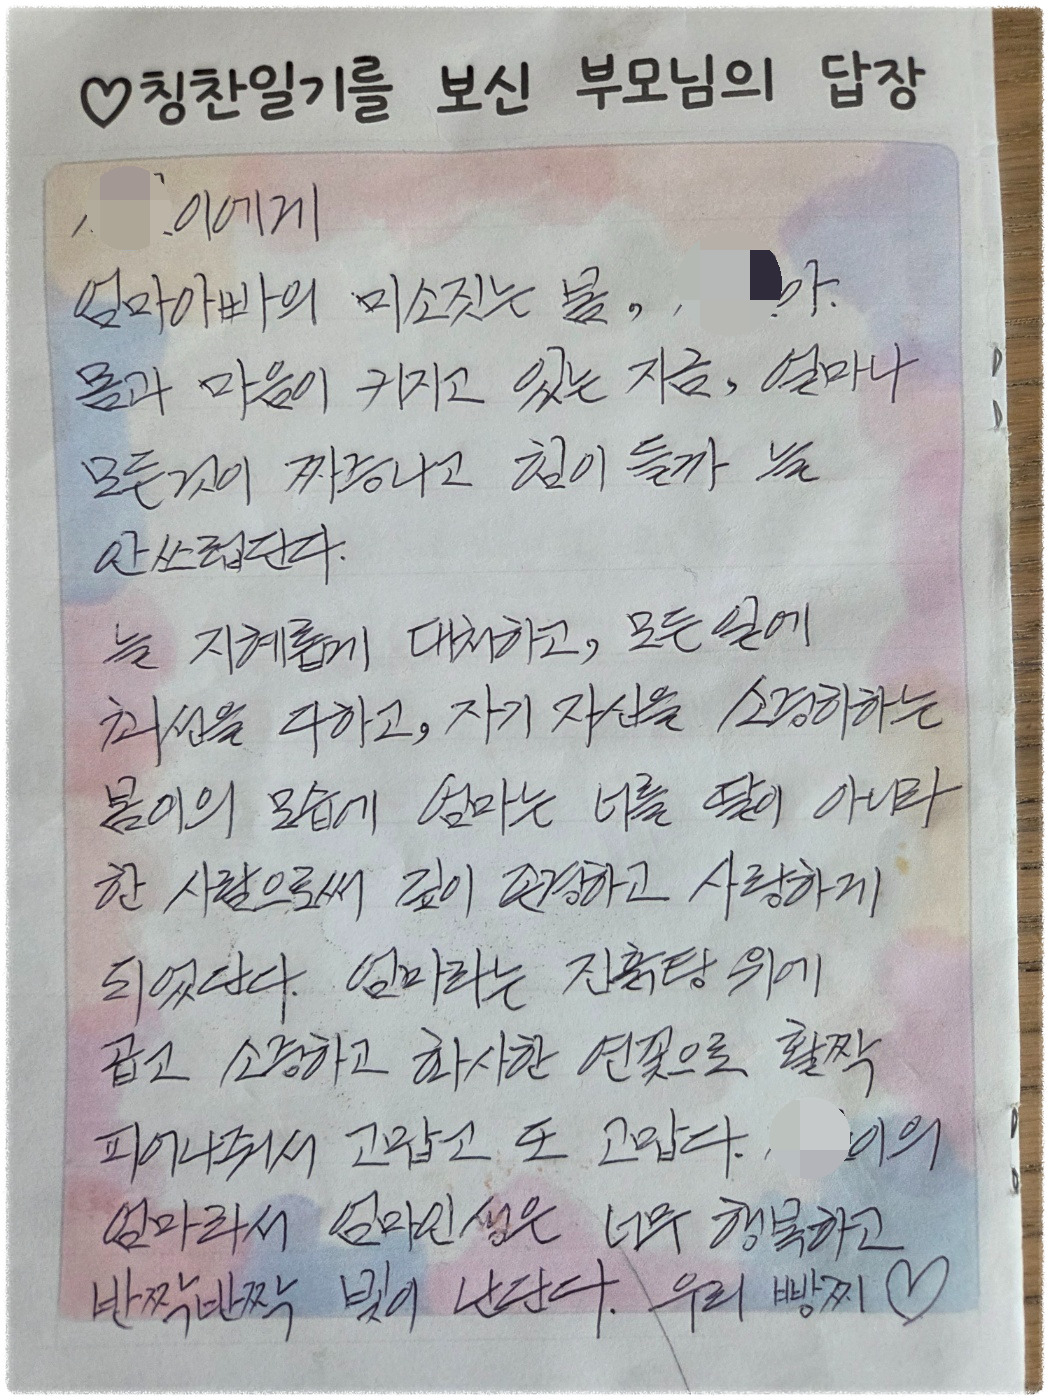 ♡칭찬일기를 보신 부모님의 답장
이에게
엄마아빠의 미소짓는 봄, 아.
몸과 마음이 커지고 있는 지금, 얼마나
모든것이 짜증나고 힘이 들까 늘
안쓰럽단다.
늘 지혜롭게 대처하고, 모든일에
최선을 다하고, 자기 자신을 소중하하는
봄이의 모습에 엄마는 너를 딸이 아니라
한 사람으로써 깊이 존경하고 사랑하게
되었단다. 엄마라는 진흙탕 위에
곱고 소중하고 화사한 연꽃으로 활짝
피어나줘서 고맙고 또 고맙다. 이의
엄마라서 엄마인생은 너무 행복하고
반짝반짝 빛이 난단다. 우리 빵찌♡